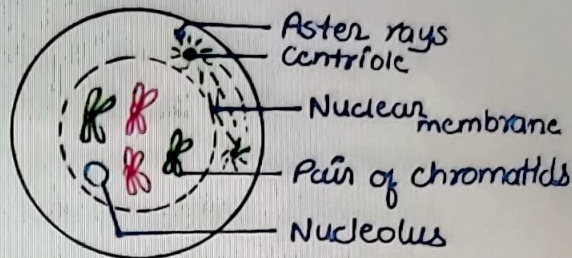 Aster rays
Centriole
Nuclear membrane
Pair of chromatids
Nucleolus